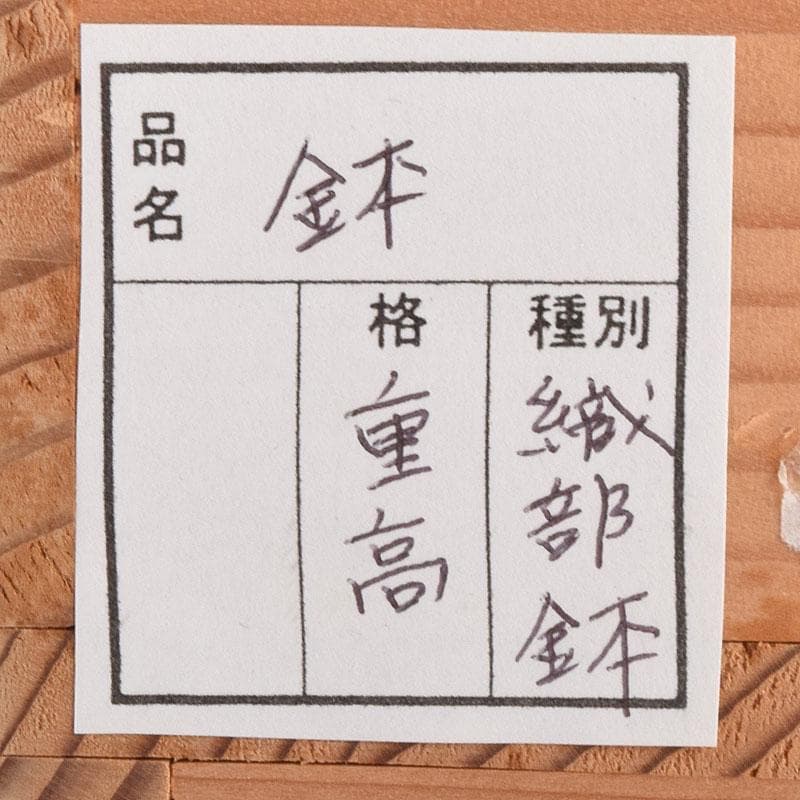 品名
鉢
種別
織部鉢
格
重高